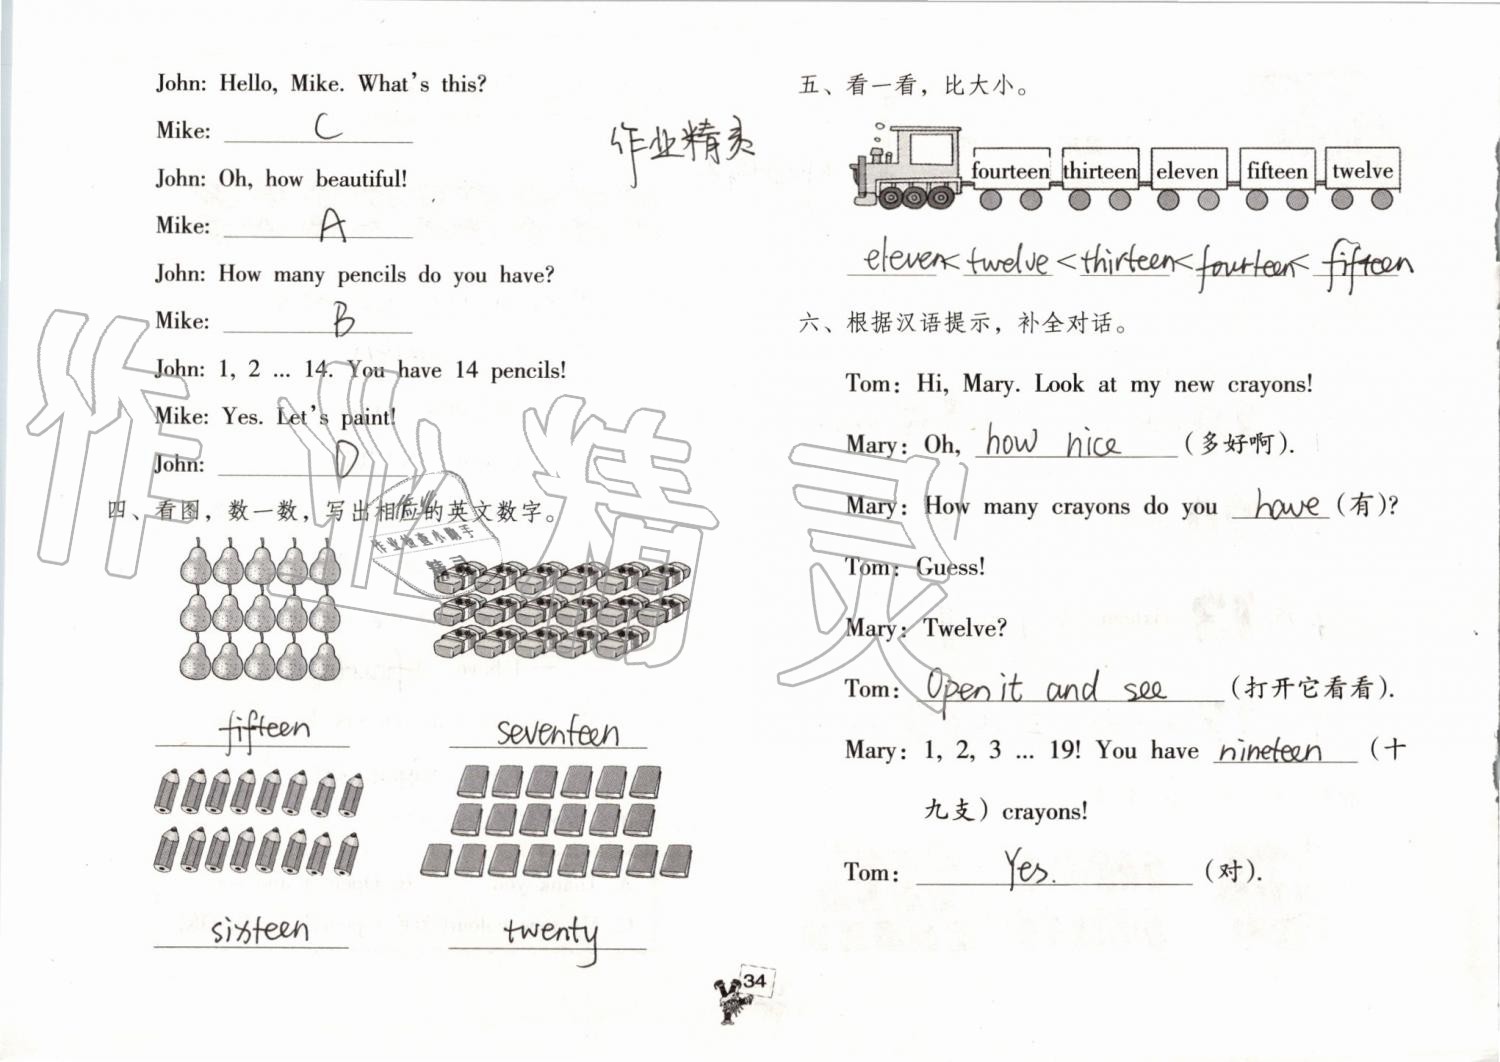 John: Hello, Mike. What's this?
Mike: C
John: Oh, how beautiful!
Mike: A
John: How many pencils do you have?
Mike: B
John: 1, 2 … 14. You have 14 pencils!
Mike: Yes. Let's paint!
John: D
作业精灵
四、看图，数一数，写出相应的英文数字。
作业
作业检查小助手
精灵
fifteen seventeen
sixteen twenty
五、看一看，比大小。
fourteen thirteen eleven fifteen twelve
eleven< twelve <thirteen< fourteen< fifteen
六、根据汉语提示，补全对话。
Tom: Hi, Mary. Look at my new crayons!
Mary: Oh, how nice (多好啊).
Mary: How many crayons do you have (有)?
Tom: Guess!
Mary: Twelve?
Tom: Open it and see (打开它看看).
Mary: 1, 2, 3 … 19! You have nineteen (十
九支) crayons!
Tom: Yes. (对).
34
作业精灵